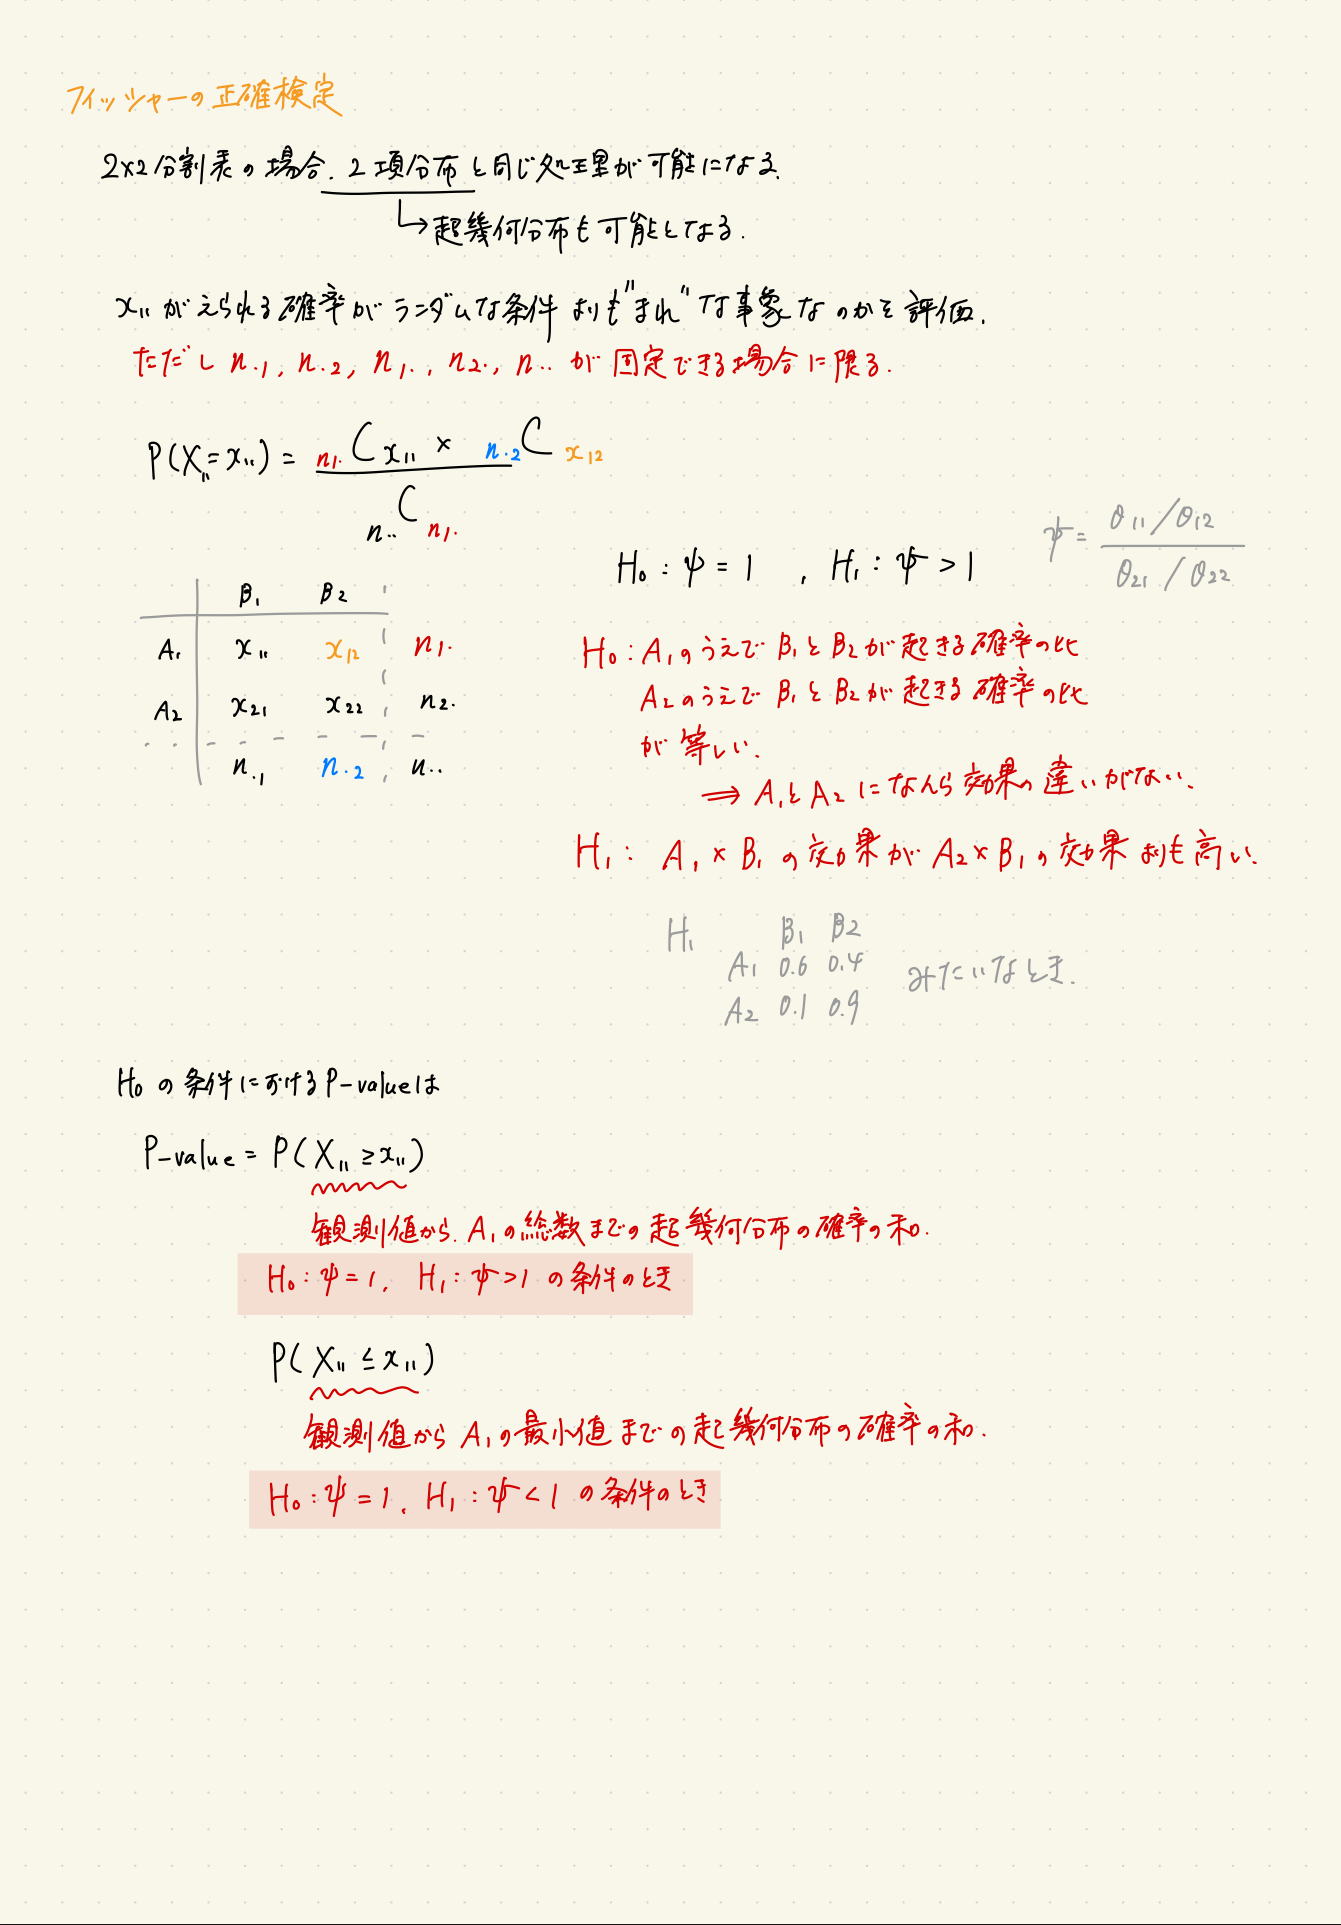 フィッシャーの正確検定
2×2分割表の場合．2項分布と同じ処理が可能になる．
↳起幾何分布も可能となる．
x₁₁がえられる確率がランダムな条件よりも"まれ"な事象なのかを評価．
ただし n.₁, n.₂, n₁., n₂., n.. が固定できる場合に限る．
P(X₁₁=x₁₁) = n₁.Cx₁₁ × n.₂Cx₁₂
n..Cn₁.
ψ = θ₁₁/θ₁₂
θ₂₁/θ₂₂
H₀ : ψ = 1 , H₁ : ψ > 1
B₁ B₂
A₁ x₁₁ x₁₂ n₁.
A₂ x₂₁ x₂₂ n₂.
n.₁ n.₂ n..
H₀ : A₁のうえでB₁とB₂が起きる確率の比
A₂のうえでB₁とB₂が起きる確率の比
が等しい．
⇒ A₁とA₂になんら効果の違いがない．
H₁ : A₁×B₁の効果がA₂×B₁の効果よりも高い．
H₁ B₁ B₂
A₁ 0.6 0.4 みたいなとき．
A₂ 0.1 0.9
H₀の条件におけるP-valueは
P-value = P(X₁₁ ≥ x₁₁)
観測値から．A₁の総数までの起幾何分布の確率の和．
H₀ : ψ = 1. H₁ : ψ > 1 の条件のとき
P(X₁₁ ≤ x₁₁)
観測値からA₁の最小値までの起幾何分布の確率の和．
H₀ : ψ = 1. H₁ : ψ < 1 の条件のとき